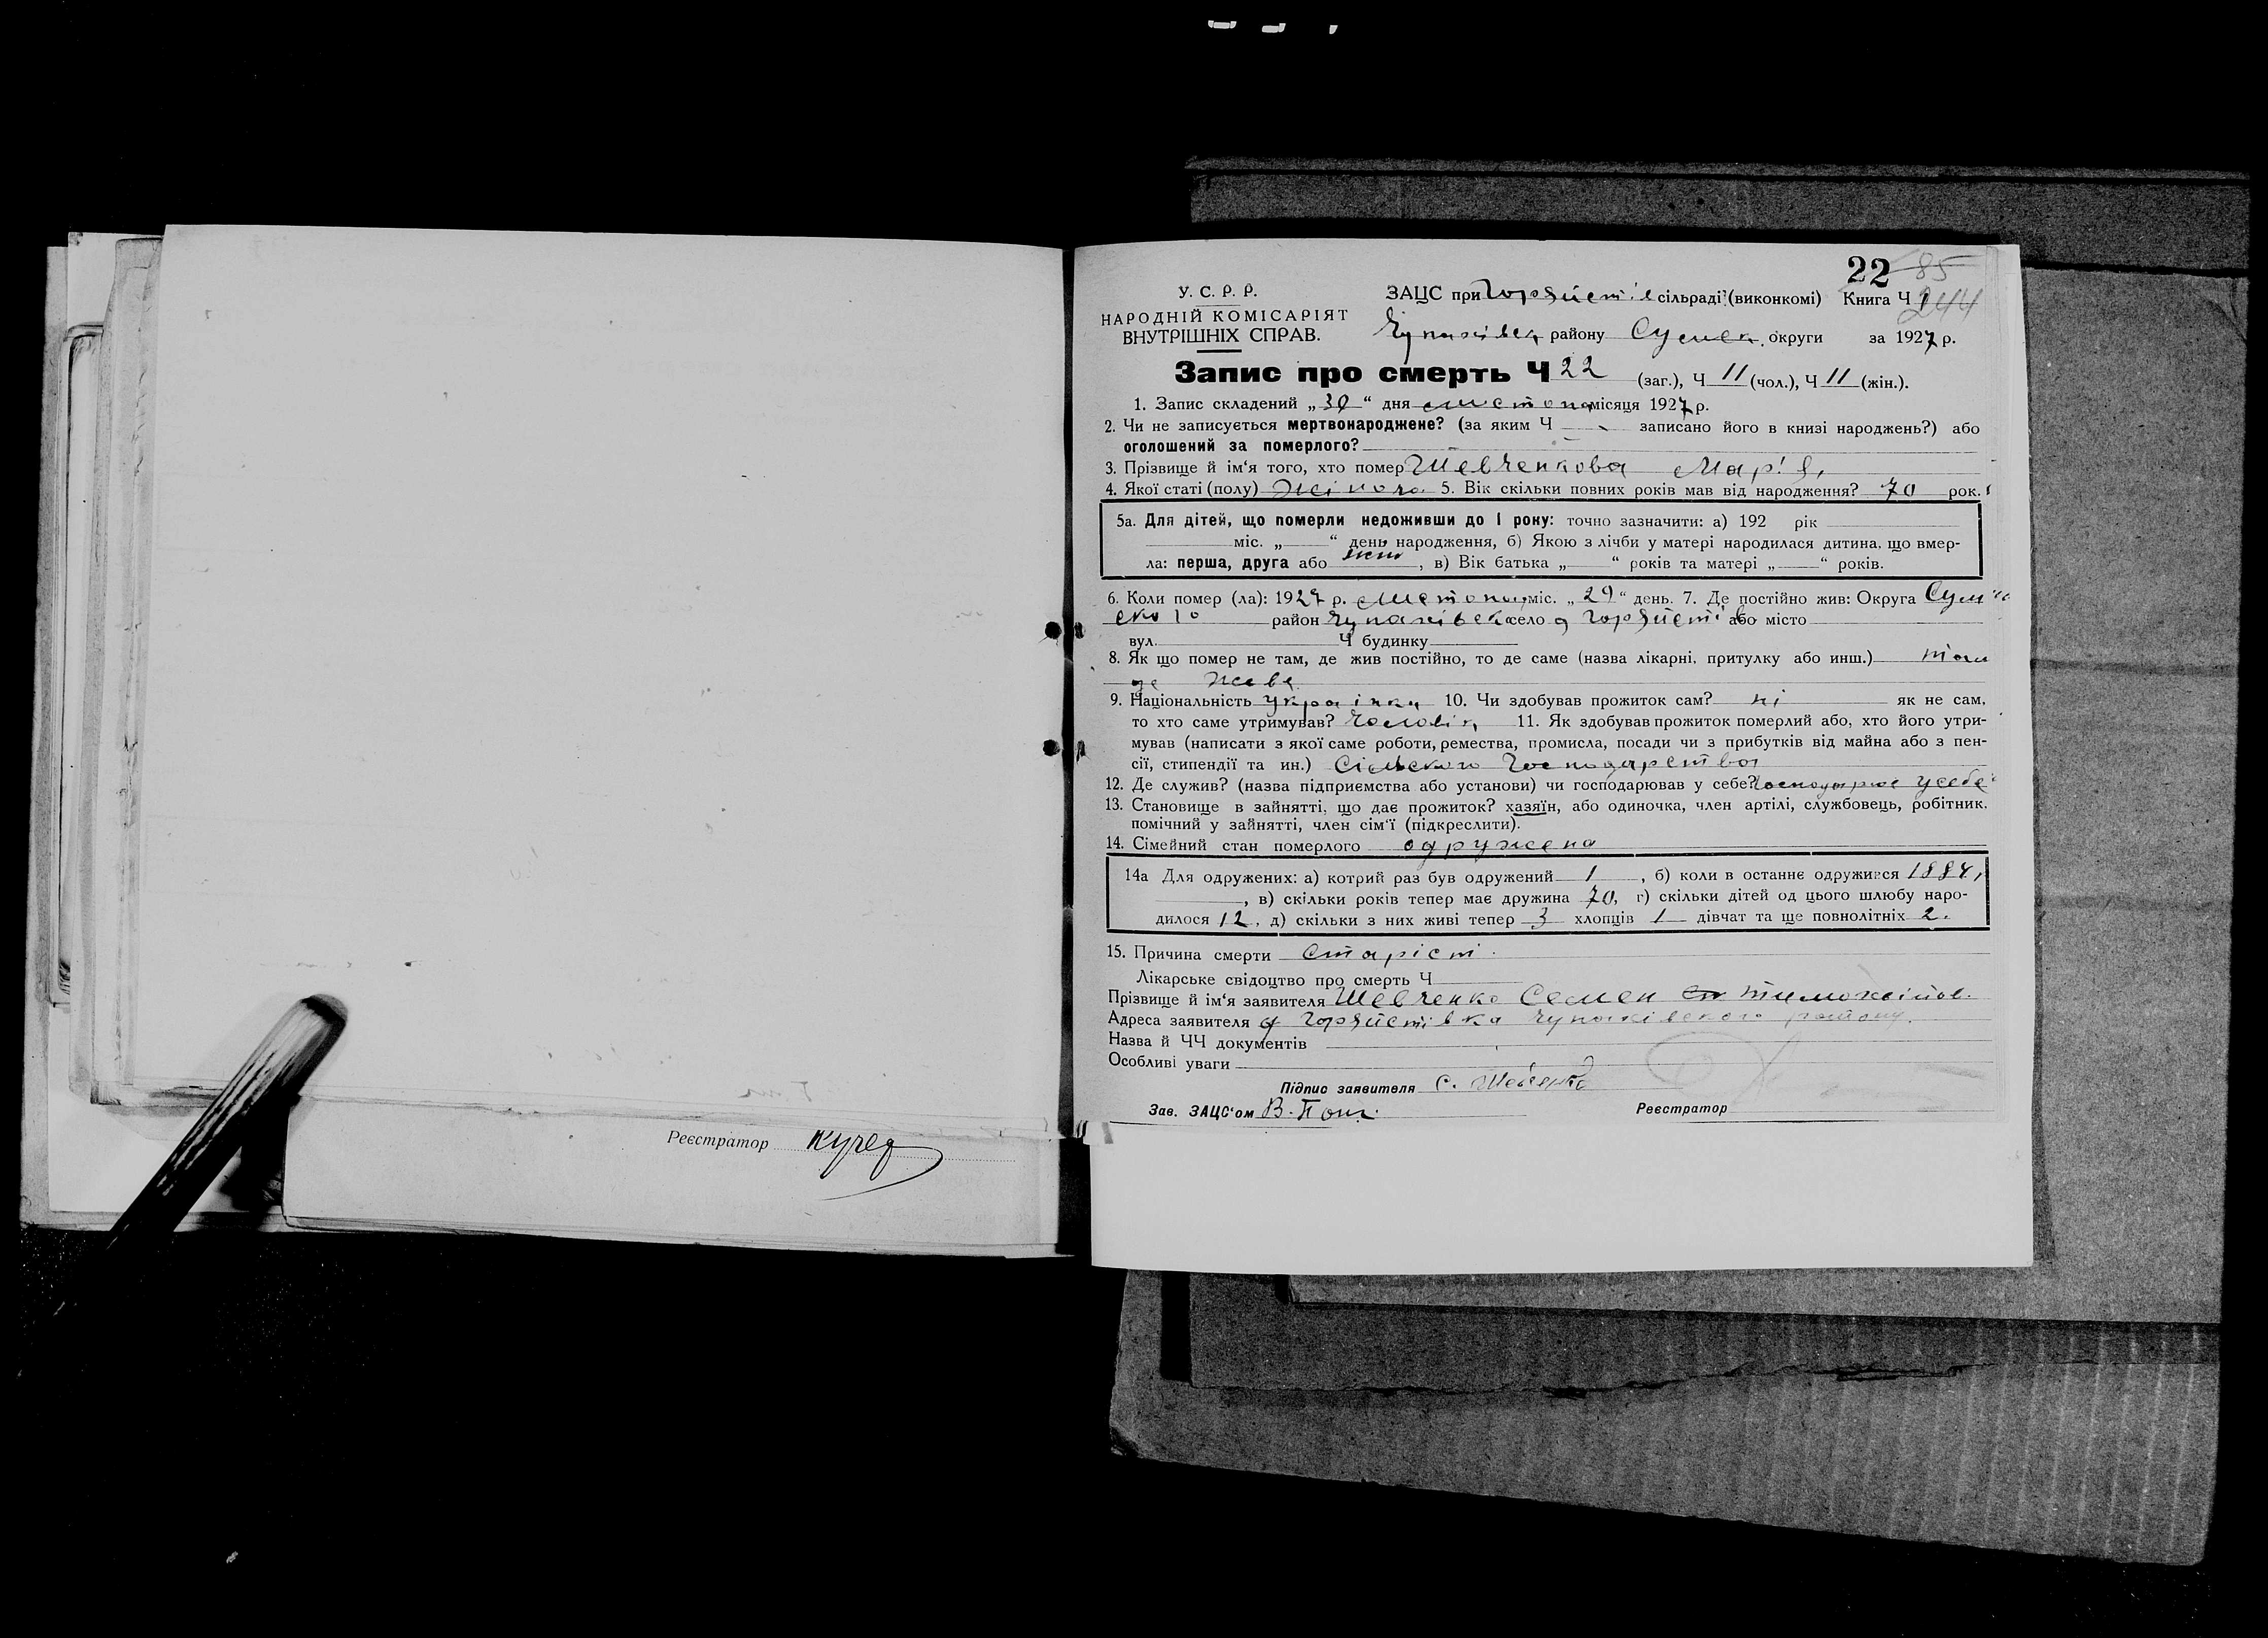 22 85
У. С. Р. Р.
ЗАЦС при сільраді (виконкомі) Книга Ч 1
244
НАРОДНІЙ КОМІСАРІЯТ
ВНУТРІШНІХ СПРАВ.
Чупахівськ району Сумськ. округи за 1927 р.
Запис про смерть Ч 22 (заг.), Ч 11 (чол.), Ч 11 (жін.).
1. Запис складений „30“ дня листопад місяця 1927 р.
2. Чи не записується мертвонароджене? (за яким Ч записано його в книзі народжень?) або
оголошений за померлого?
3. Прізвище й ім‘я того, хто помер Шевченкова Мар'я,
4. Якої статі (полу) Жіноча 5. Вік скільки повних років мав від народження? 70 рок.
5а. Для дітей, що померли недоживши до 1 року: точно зазначити: а) 192 рік
міс. „ “ день народження, б) Якою з лічби у матері народилася дитина, що вмер-
ла: перша, друга або , в) Вік батька „ “ років та матері „ “ років.
6. Коли помер (ла): 1927 р. листопад міс. „29“ день. 7. Де постійно жив: Округа Сум
ського район Чупахівськ село або місто
вул. Ч будинку
8. Як що помер не там, де жив постійно, то де саме (назва лікарні, притулку або инш.) там
де жева
9. Національність українка 10. Чи здобував прожиток сам? ні як не сам,
то хто саме утримував? чоловік 11. Як здобував прожиток померлий або, хто його утри-
мував (написати з якої саме роботи, ремества, промисла, посади чи з прибутків від майна або з пен-
сії, стипендії та ин.) Сільского Господарства
12. Де служив? (назва підприємства або установи) чи господарював у себе? господарює у себе
13. Становище в зайнятті, що дає прожиток? хазяїн, або одиночка, член артілі, службовець, робітник.
помічний у зайнятті, член сім‘ї (підкреслити).
14. Сімейний стан померлого одружена
14а Для одружених: а) котрий раз був одружений 1 , б) коли в останнє одружився 1884,
, в) скільки років тепер має дружина 70, г) скільки дітей од цього шлюбу наро-
дилося 12, д) скільки з них живі тепер 3 хлопців 1 дівчат та ще повнолітніх 2.
15. Причина смерти старіст.
Лікарське свідоцтво про смерть Ч
Прізвище й ім‘я заявителя Шевченко Семен Тимохвійов.
Адреса заявителя Чупахівского району.
Назва й ЧЧ документів
Особливі уваги
Підпис заявителя С. Шевченко
Зав. ЗАЦС‘ом В. Реєстратор
Реєстратор